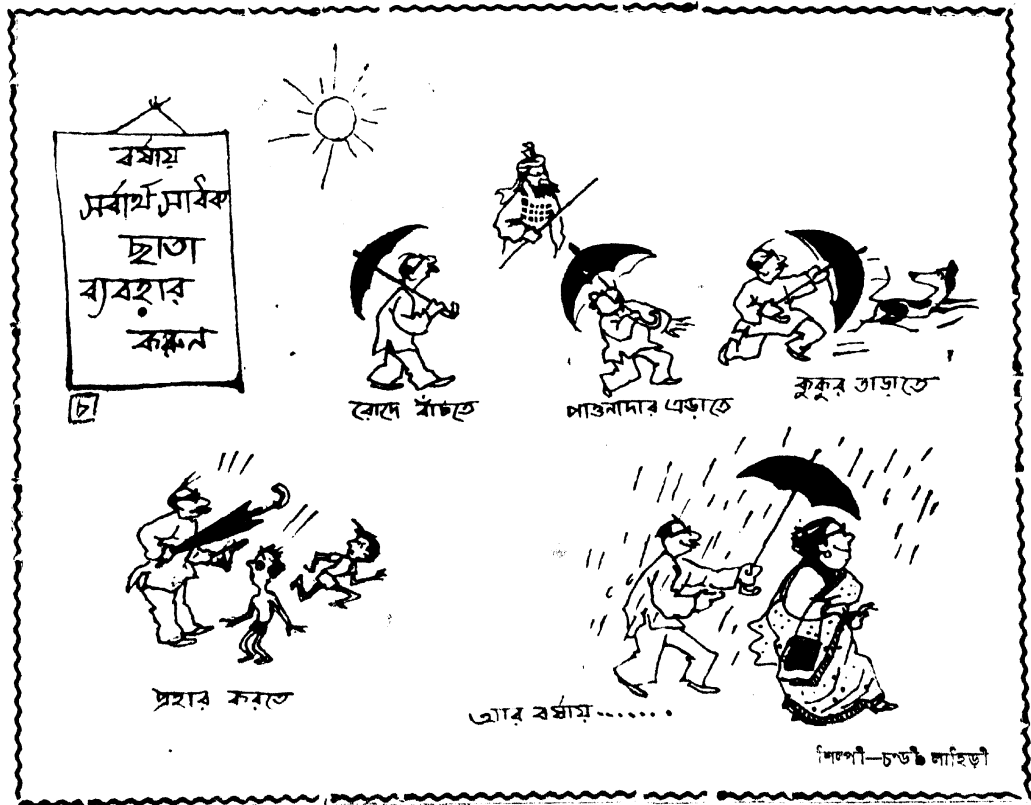 বর্ষায়
সর্বার্থ সাধক
ছাতা
ব্যবহার
করুন
চ
রোদে বাঁচতে
পাওনাদার এড়াতে
কুকুর তাড়াতে
প্রহার করতে
আর বর্ষায়.......
শিল্পী—চণ্ডী লাহিড়ী